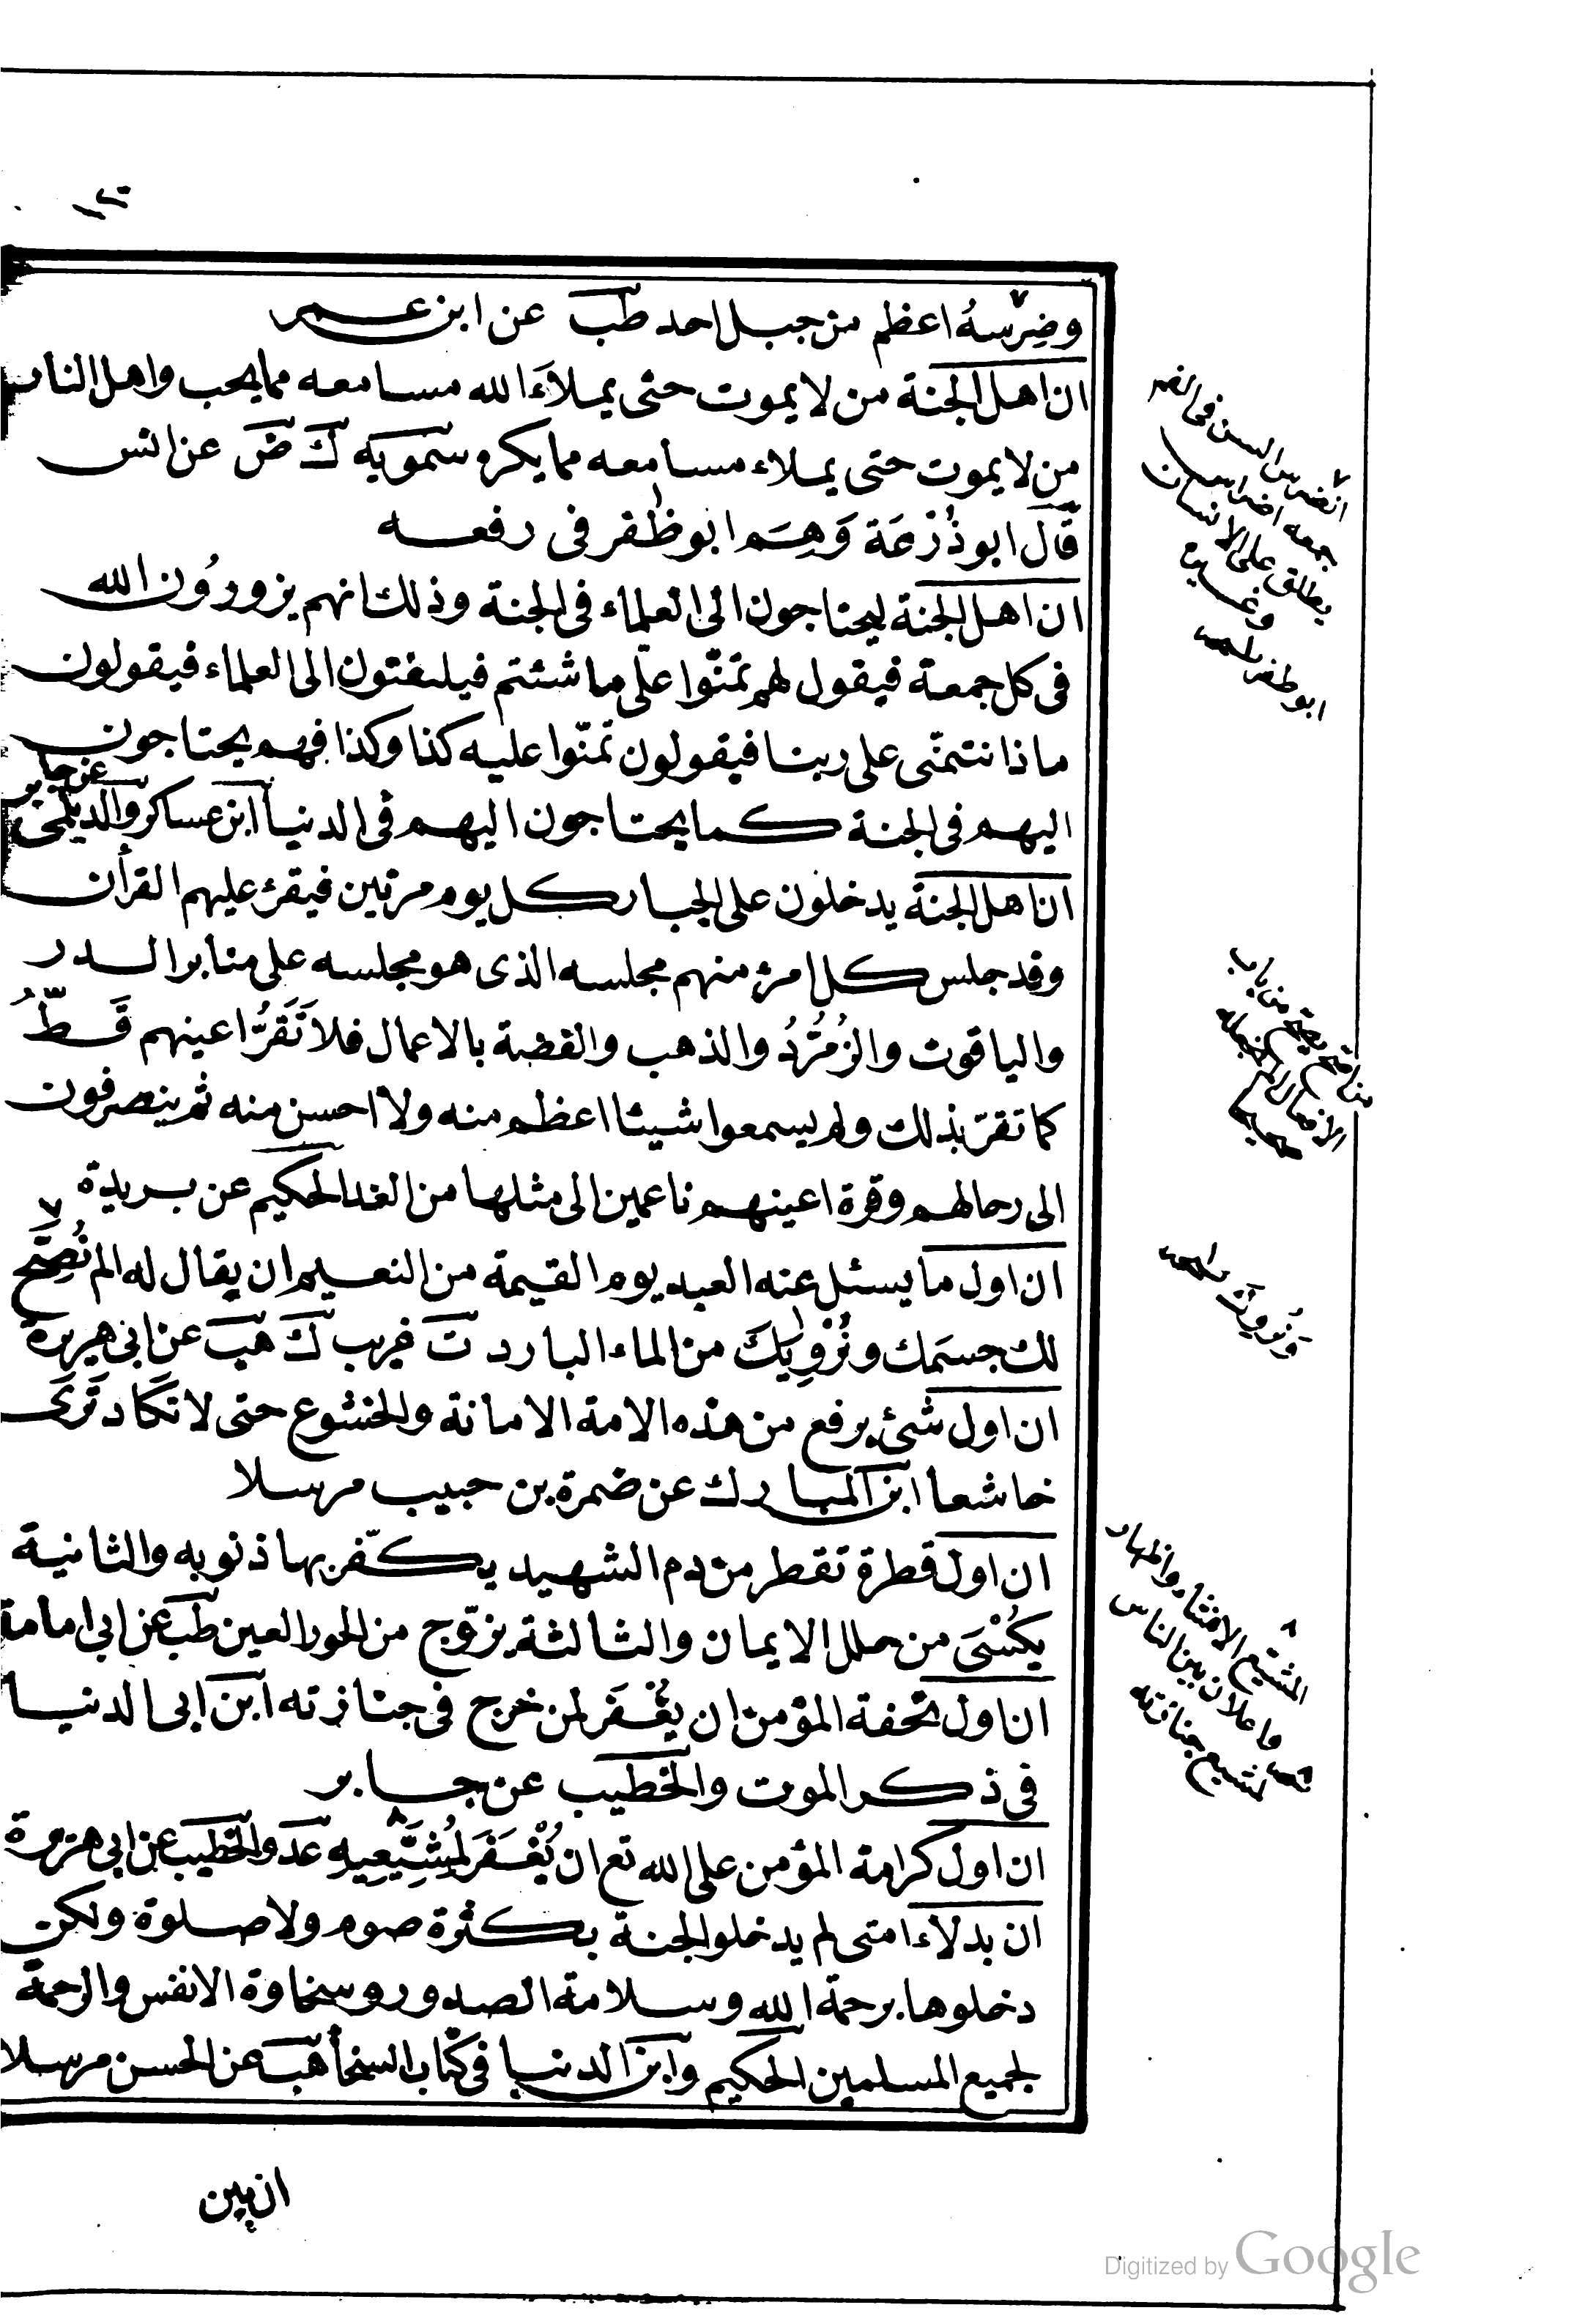 وضِرْسهُ اعظم من جبل احد طب عن ابن عمر
ان اهل الجنة من لا يموت حتى يملاَء الله مسامعه مما يحب واهل النار
من لا يموت حتى يملاء مسامعه مما يكره سمويه ك ض عن انس
قال ابو ذُرْعَة وَهِمَ ابو ظفر فى رفعه
ان اهل الجنة ليحتاجون الى العلماء فى الجنة وذلك انهم يزورُون الله
فى كل جمعة فيقول لهم تمنّوا علىّ ما شئتم فيلتفتون الى العلماء فيقولون
ماذا نتمنّى على ربنا فيقولون تمنّوا عليه كذا وكذا فهم يحتاجون
اليهم فى الجنة كما يحتاجون اليهم فى الدنيا ابن عساكر والديلمى عن جابر
ان اهل الجنة يدخلون على الجبار كل يوم مرتين فيقرؤ عليهم القرأن
وقد جلس كل امرئ منهم مجلسه الذى هو مجلسه على منابر الدر
والياقوت والزُمُرُّدُ والذهب والفضة بالاعمال فلا تَقَرُّ اعينهم قَطُّ
كما تقرّ بذلك ولم يسمعوا شيئا اعظم منه ولا احسن منه ثم ينصرفون
الى رحالهم وقرة اعينهم ناعمين الى مثلها من الغد الحكيم عن بريدة
ان اول ما يسئل عنه العبد يوم القيمة من النعيم ان يقال له الم نُصِحَّ
لك جسمك ونُرْوِيكَ من الماء البارد ت غريب ك هب عن ابى هريرة
ان اول شئ يرفع من هذه الامة الامانة والخشوع حتى لا تكاد تَرَى
خاشعا ابن المبارك عن ضمرة بن حبيب مرسلا
ان اول قطرة تقطر من دم الشهيد يكفّر بها ذنوبه والثانية
يكُسْىَ من حلل الايمان والثالثة يزوّج من الحور العين طب عن ابى امامة
ان اول تحفة المؤمن ان يُغْفَرَ لمن خرج فى جنازته ابن ابى الدنيا
فى ذكر الموت والخطيب عن جابر
ان اول كرامة المؤمن على الله تع ان يُغْفَرَ لمُشَيِّعِيهِ عد والخطيب عن ابى هريرة
ان بدلاء امتى لم يدخلوا الجنة بكثرة صوم ولا صلوة ولكن
دخلوها برحمة الله وسلامة الصدور وسخاوة الانفس والرحمة
لجميع المسلمين الحكيم وابن الدنيا فى كتاب السخا هب عن الحسن مرسلا
ان بين
جمعه اضراس
يطلق على الانسان
وغيره
ابو ظفر
من باب
المشيّع الافشاء واظهار
واعلان بين الناس
جنازته
Digitized by Google